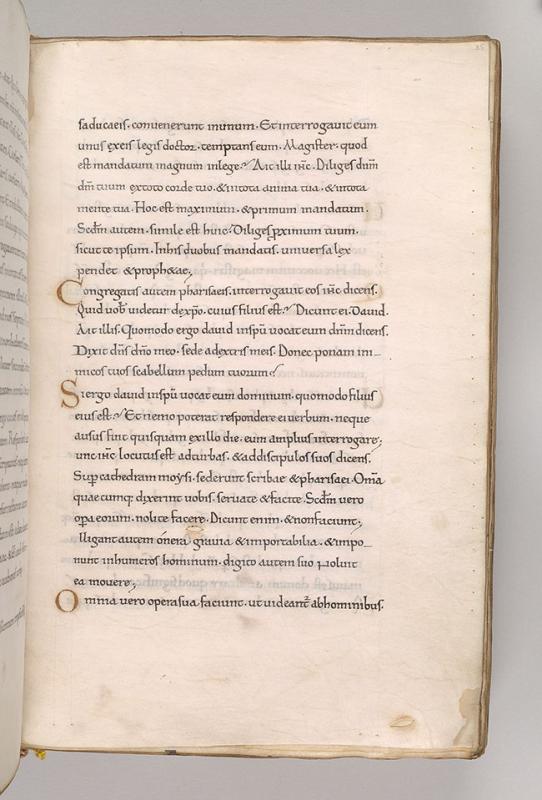 saducaeis. convenerunt inunum. Et interrogavit eum
unus exeis legis doctor. temptans eum. Magister. quod
est mandatum magnum inlege. Ait illi ihc. Diliges dnm
dm tuum extoto corde tuo. &intota anima tua. &intota
mente tua. Hoc est maximum. &primum mandatum.
Scdm autem. simile est huic. Diliges pximum tuum.
sicut te ipsum. Inhis duobus mandatis. universa lex
pendet &prophetae;
Congregatis autem pharisaeis. interrogavit eos ihc dicens.
Quid vob videtur dexpo. cuius filius est. Dicunt ei. David.
Ait illis. Quomodo ergo david inspu vocat eum dnm dicens.
Dixit dns dno meo. sede adextris meis. Donec ponam ini
micos tuos scabellum pedum tuorum.
Si ergo david inspu vocat eum dominum. quomodo filius
eius est. Et nemo poterat respondere ei verbum. neque
ausus fuit quisquam exillo die. eum amplius interrogare;
unc ihc locutus est adturbas. &addiscipulos suos dicens.
Sup cathedram moysi. sederunt scribae &pharisaei. Oma
quaecumq; dixerint vobis. servate &facite. Scdm vero
opa eorum. nolite facere. Dicunt enim. &nonfaciunt;
lligant autem onera gravia &importabilia. &impo
nunt inhumeros hominum. digito autem suo nolunt
ea movere;
Omnia vero opera sua faciunt. ut videant abhominibus.